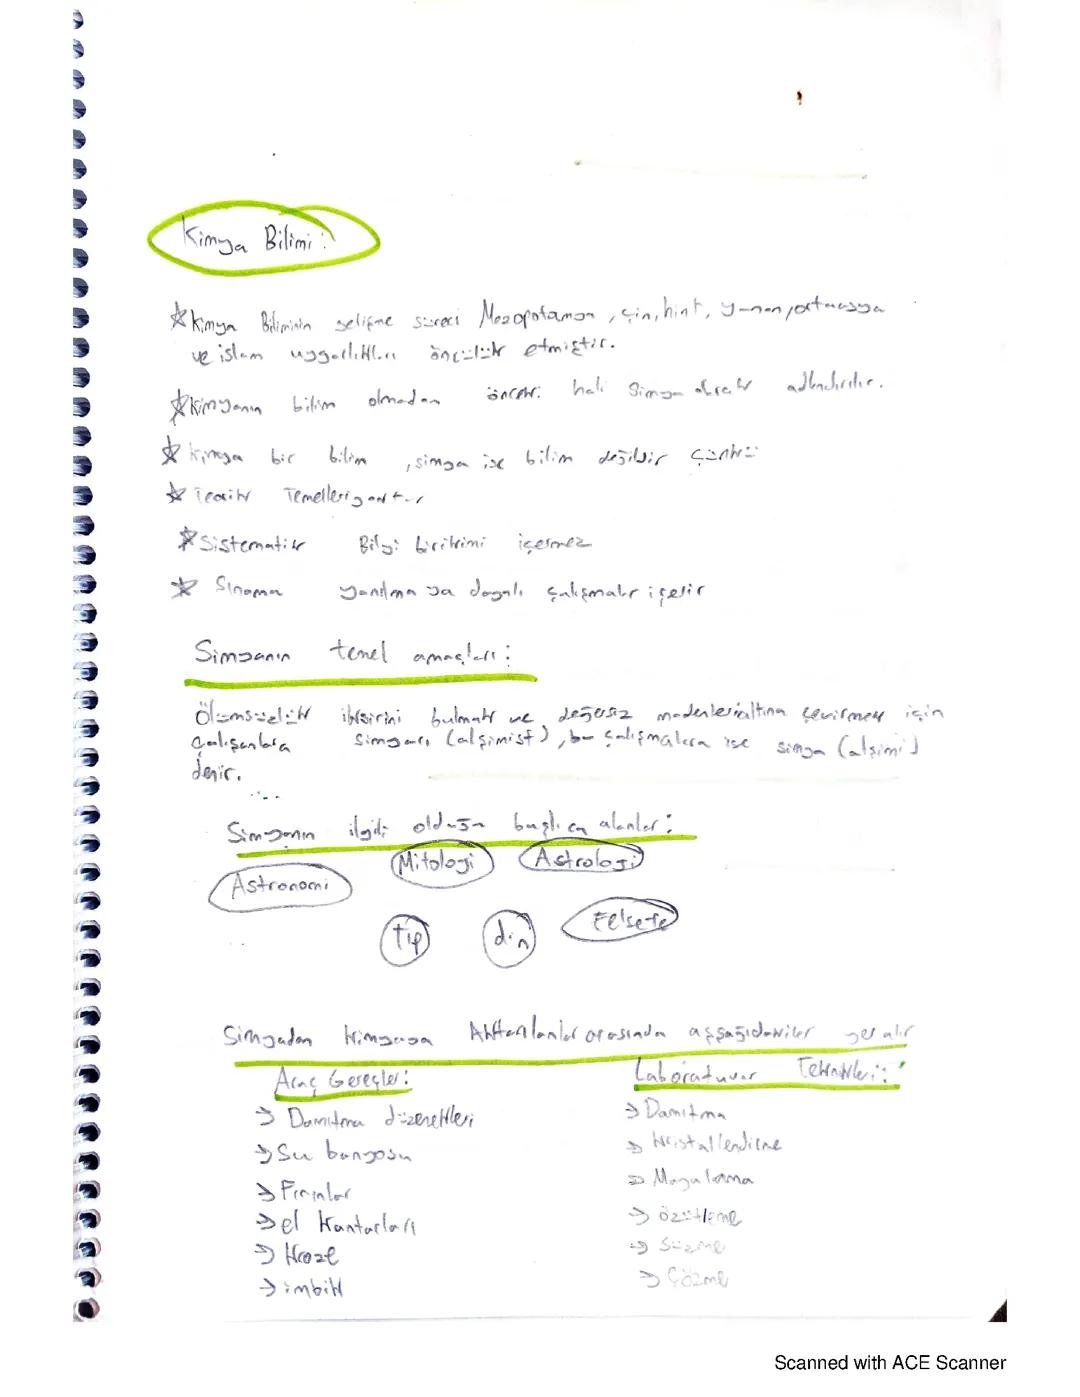 Kimya Bilimi:
★ Kimya Biliminin gelişme süreci Mezopotamya, çin, hint, yunan, ortaasya
ve islam uygarlıkları öncülük etmiştir.
★ Kimyanın bilim olmadan önceki hali Simya olarak adlandırılır.
★ kimya bir bilim, simya ise bilim değildir çünkü
★ Teorik Temelleri yoktur
★ Sistematik Bilgi birikimi içermez
★ Sınama yanılma ya dayalı çalışmalar içerir
Simyanın temel amaçları:
Ölümsüzlük iksirini bulmak ve değersiz madenleri altına çevirmek için
çalışanlara simyacı (alşimist), bu çalışmalara ise simya (alşimi)
denir.
Simyanın ilgili olduğu başlıca alanlar:
Mitoloji Astroloji
Astronomi
Tıp din Felsefe
Simyadan kimyaya Aktarılanlar arasında aşşağıdakiler yer alır
Araç Gereçler: Laboratuvar Teknikleri:
→ Damıtma düzenekleri → Damıtma
→ Su banyosu → Kristallendirme
→ Fırınlar → Mayalama
→ el kantarları → özütleme
→ Kroze → Süzme
→ imbik → Çözme
Scanned with ACE Scanner